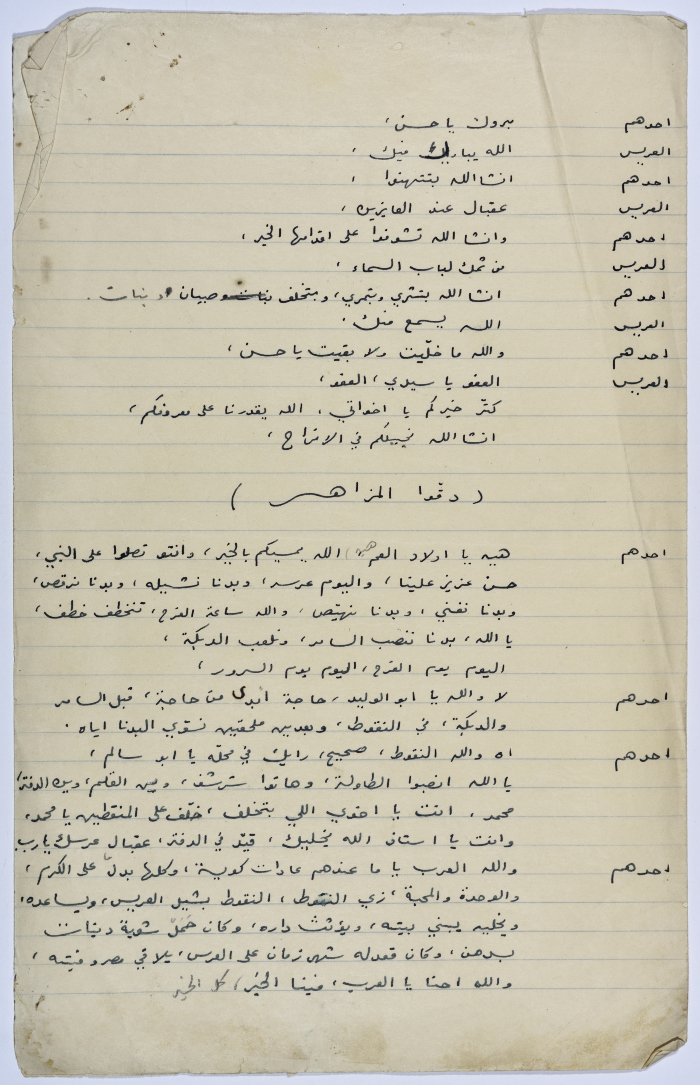 احدهم مبروك يا حسن ،
العريس الله يبارك فيك ،
احدهم انشاالله بتتهنوا ،
العريس عقبال عند العايزين ،
احدهم وانشا الله تشوفوا على اقدامها الخير ،
العريس من تمك لباب السماء ،
احدهم انشا الله بتثري وبتمري ، وبتخلف صبيان وبنات .
العريس الله يسمع منك .
احدهم والله ما خلّيت ولا بقيت يا حسن ،
العريس العفو يا سيدي ، العفو ،
كتّر خيركم يا اخواتي ، الله يقدرنا على معروفكم ،
انشا الله نجيلكم في الافراح ،
( دقّوا المزاهر )
احدهم هيه يا اولاد العم الله يمسيكم بالخير ، وانتو تصلوا على النبي ،
حسن عزيز علينا ، واليوم عرسه ، وبدنا نشيله ، وبدنا نرقص ،
وبدنا نغني ، وبدنا نهيّص ، والله ساعة الفرح ، تنخطف خطف ،
يا الله ، بدنا ننصب السامر ، ونلعب الدبكة ،
اليوم يوم الفرح ، اليوم يوم السرور ،
احدهم لا والله يا ابو الوليد ، حاجة ابدى من حاجة ، قبل السامر
والدبكة ، في النقوط ، وبعدين ملحقين نسوّي البدنا اياه .
احدهم اه والله النقوط ، صحيح ، رايك في محلّه يا ابو سالم ،
يا الله انصبوا الطاولة ، وهاتوا شرشف ، وين القلم ، وين الدفتر ،
محمد ، انت يا اخوي اللي بتخلف ، خلّف على المنقطين يا محمد ،
وانت يا استاذ الله يخليك ، قيّد في الدفتر ، عقبال عرسك يارب
احدهم والله العرب يا ما عندهم عادات كويسة ، وكلها بدلّ على الكرم ،
والوحدة والمحبة ، زي النقوط ، النقوط بشيل العريس ، ويساعده ،
ويخليه يبني بيته ، ويؤثث داره ، وكان حَمَلّ شوية دينات
بدهن ، وكان قعدله شهر زمان على العرس ، يلاقي مصروفيته ،
والله احنا يا العرب ، فينا الخير ، كل الخير